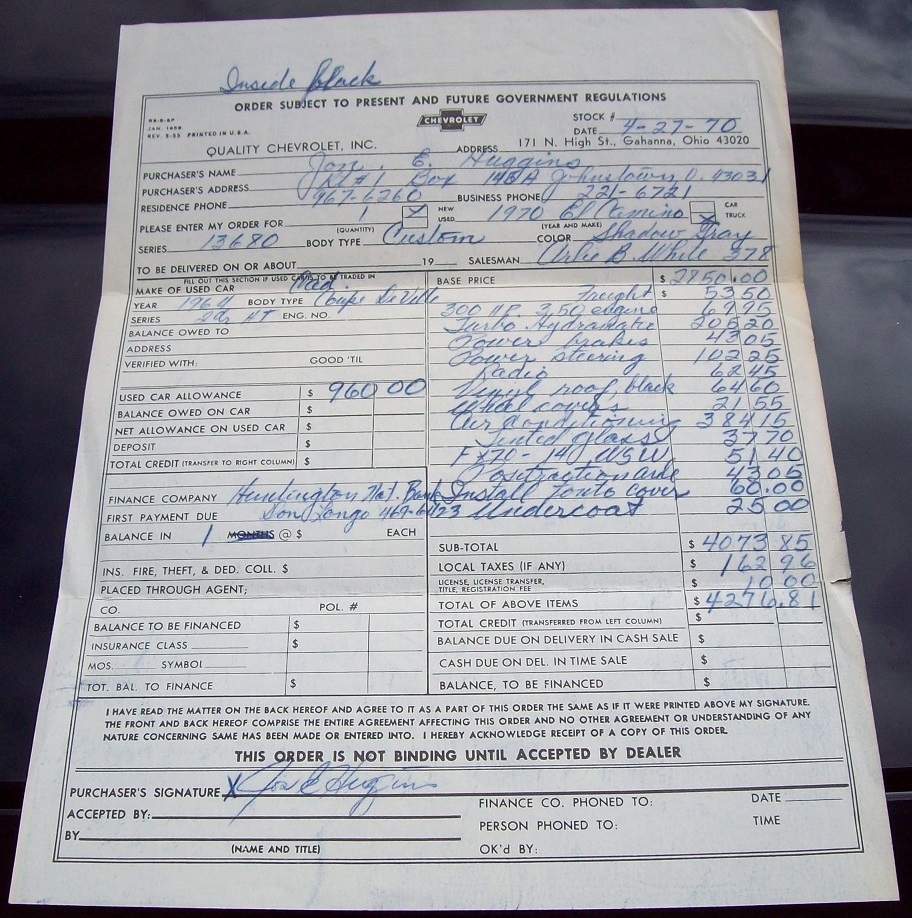 Inside Black
ORDER SUBJECT TO PRESENT AND FUTURE GOVERNMENT REGULATIONS
CHEVROLET
STOCK #
PRINTED IN U.S.A.
DATE 4-27-70
QUALITY CHEVROLET, INC. ADDRESS 171 N. High St., Gahanna, Ohio 43020
PURCHASER'S NAME Jon. E. Huggins
PURCHASER'S ADDRESS Rt #1 Box 148A Johnstown, O. 43031
RESIDENCE PHONE 967-6260 BUSINESS PHONE 221-6721
PLEASE ENTER MY ORDER FOR 1 (QUANTITY) X NEW USED 1970 El Camino (YEAR AND MAKE) X CAR TRUCK
SERIES 13680 BODY TYPE Custom COLOR Shadow Gray
TO BE DELIVERED ON OR ABOUT 19 SALESMAN Artie B. White 378
FILL OUT THIS SECTION IF USED CAR IS TO BE TRADED IN
MAKE OF USED CAR Cad.
YEAR 1964 BODY TYPE Coupe DeVille
SERIES 2dr HT ENG. NO.
BALANCE OWED TO
ADDRESS
VERIFIED WITH: GOOD 'TIL
USED CAR ALLOWANCE $ 960 00
BALANCE OWED ON CAR $
NET ALLOWANCE ON USED CAR $
DEPOSIT $
TOTAL CREDIT (TRANSFER TO RIGHT COLUMN) $
FINANCE COMPANY Huntington Nat. Bank
FIRST PAYMENT DUE Don Longo 469-6423
BALANCE IN 1 MONTHS @ $ EACH
INS. FIRE, THEFT, & DED. COLL. $
PLACED THROUGH AGENT;
CO. POL. #
BALANCE TO BE FINANCED $
INSURANCE CLASS $
MOS. SYMBOL
TOT. BAL. TO FINANCE $
BASE PRICE $ 2850.00
Freight $ 53 50
300 H.P. 350 engine 69 95
Turbo Hydramatic 205 20
Power brakes 43 05
Power steering 102 25
Radio 62 45
Vinyl roof, black 64 60
Wheel covers 21 55
Air Conditioning 384 15
Tinted Glass 37 70
F X 70 - 14 WSW 51 40
Positraction axle 43 05
Install Tonto cover 60.00
Undercoat 25 00
SUB-TOTAL $ 4073 85
LOCAL TAXES (IF ANY) $ 162 96
LICENSE, LICENSE TRANSFER, TITLE, REGISTRATION FEE $ 10 00
TOTAL OF ABOVE ITEMS $ 4276.81
TOTAL CREDIT (TRANSFERRED FROM LEFT COLUMN) $
BALANCE DUE ON DELIVERY IN CASH SALE $
CASH DUE ON DEL. IN TIME SALE $
BALANCE, TO BE FINANCED $
I HAVE READ THE MATTER ON THE BACK HEREOF AND AGREE TO IT AS A PART OF THIS ORDER THE SAME AS IF IT WERE PRINTED ABOVE MY SIGNATURE.
THE FRONT AND BACK HEREOF COMPRISE THE ENTIRE AGREEMENT AFFECTING THIS ORDER AND NO OTHER AGREEMENT OR UNDERSTANDING OF ANY
NATURE CONCERNING SAME HAS BEEN MADE OR ENTERED INTO. I HEREBY ACKNOWLEDGE RECEIPT OF A COPY OF THIS ORDER.
THIS ORDER IS NOT BINDING UNTIL ACCEPTED BY DEALER
PURCHASER'S SIGNATURE X Jon E Huggins
ACCEPTED BY:
BY
(NAME AND TITLE)
FINANCE CO. PHONED TO: DATE
PERSON PHONED TO: TIME
OK'd BY: